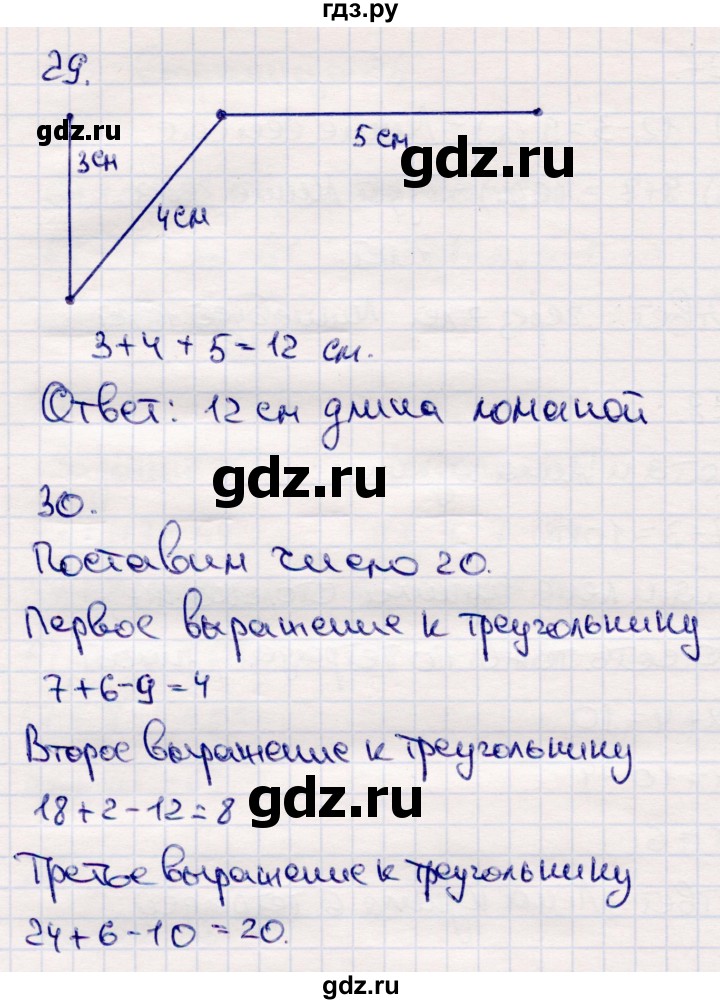 гдз.ру
29.
gdz.ru
3см
5см
gdz.ru
4см
3+4+5=12 см.
Ответ: 12 см длина ломаной
gdz.ru
30.
Поставим число 20.
Первое выражение к треугольнику
7+6-9=4
Второе выражение к треугольнику
gdz.ru
18+2-12=8
Третье выражение к треугольнику
24+6-10=20.
gdz.ru
gdz.ru